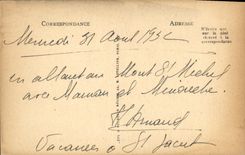 CORRESPONDANCE
ADRESSE
Mercredi 31 Aout 1932
N'écrire que
sur le côté
réservé à la
correspondance
en allant au Mont St Michel
avec Maman et
Vacances à St Jacut